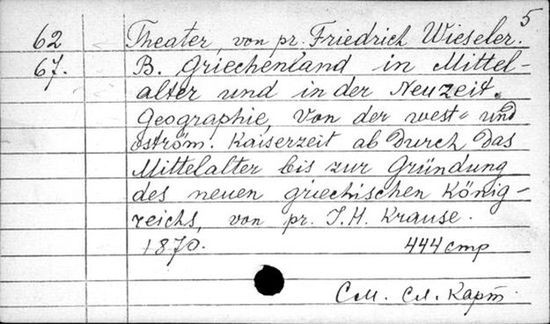 5
62 Theater, von pr. Friedrich Wieseler.
67. B. Griechenland in Mittel-
alter und in der Neuzeit.
Geographie, von der west- und
oström. Kaiserzeit ab durch das
Mittelalter bis zur Gründung
des neuen griechischen König-
reichs, von pr. J.H. Krause.
1870. 444 стр
См. сл. карт.